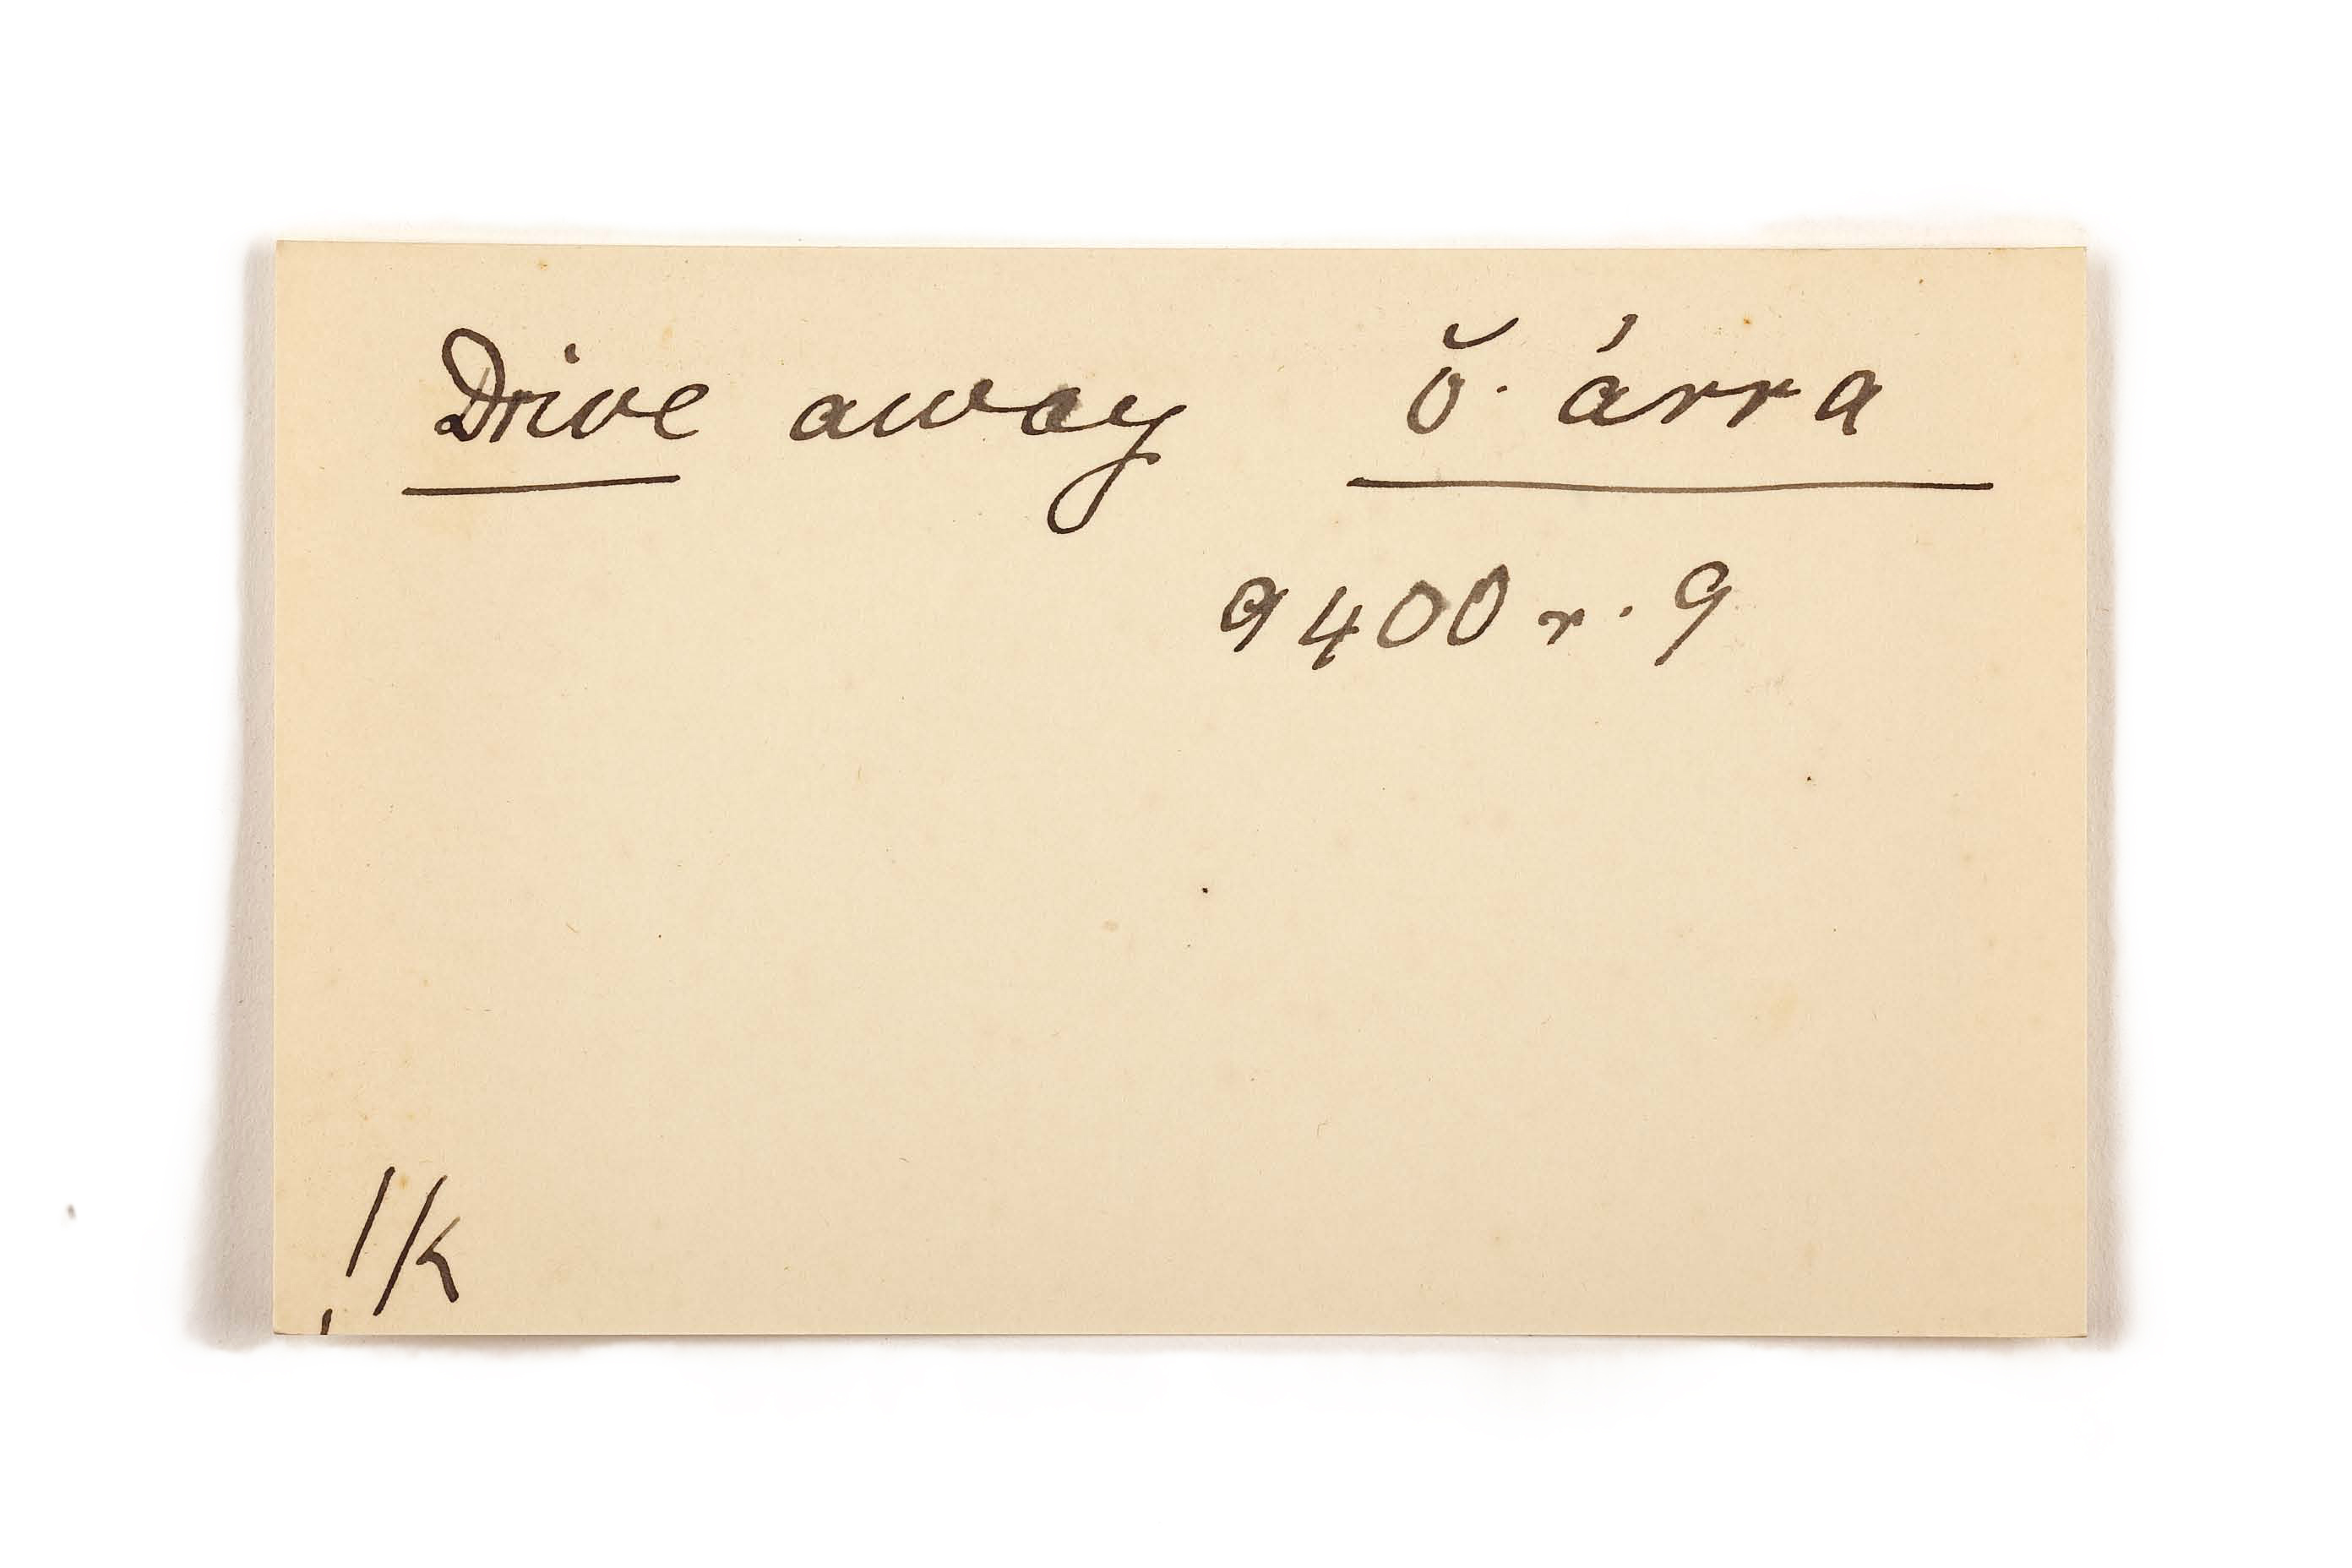 Drive away ŏ· árra
9400 r. 9
!k